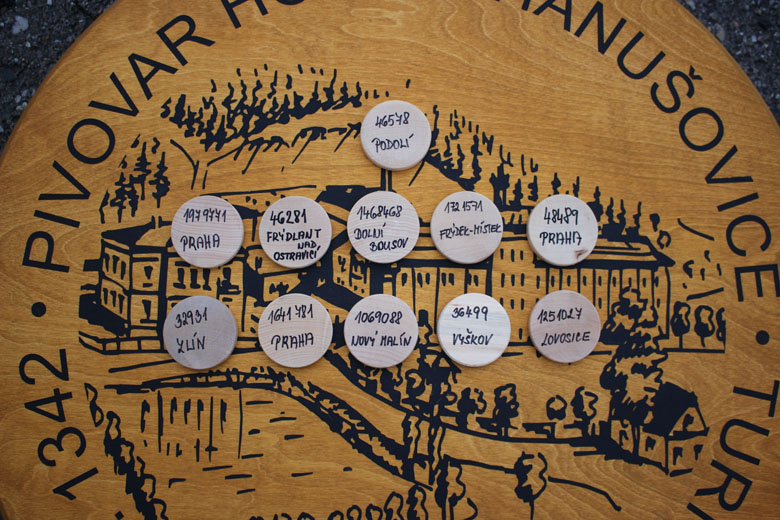 1342 • PIVOVAR
HANUŠOVICE • TUR
46578
PODOLÍ
1979771
PRAHA
46281
FRÝDLANT
NAD
OSTRAVICÍ
1468468
DOLNÍ
BOUSOV
1721571
FRÝDEK-MÍSTEK
48489
PRAHA
38931
ZLÍN
1641781
PRAHA
1069088
NOVÝ MALÍN
36499
VYŠKOV
1251027
LOVOSICE